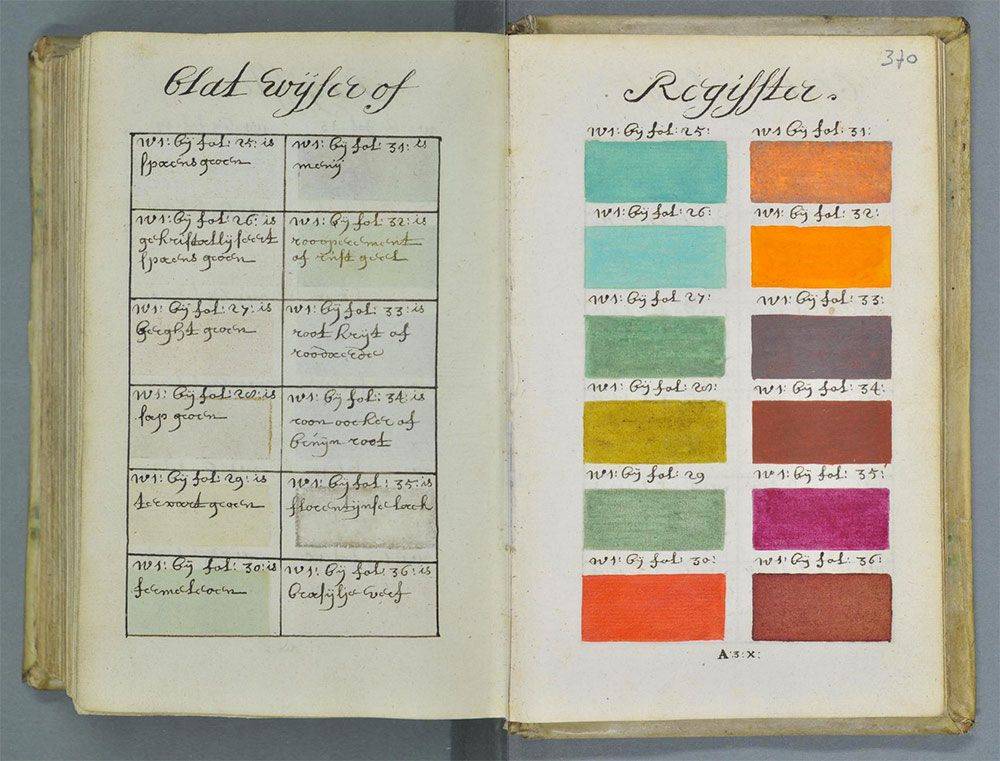 blat wijser of
w1: bij fol: 25: is
spaens groen
w1: bij fol: 26: is
gekristallijseert
spaens groen
w1: bij fol: 27: is
berght groen
w1: bij fol: 28: is
sap groen
w1: bij fol: 29: is
terwart groen
w1: bij fol: 30: is
fermeleoen
w1: bij fol: 31: is
menij
w1: bij fol: 32: is
roooperement
of rust geel
w1: bij fol: 33: is
root krijt of
roodaerde
w1: bij fol: 34: is
roon oocker of
bruijn root
w1: bij fol: 35: is
florentijnse lack
w1: bij fol: 36: is
brasijlje verf
370
Regisster.
w1: bij fol: 25:
w1 bij fol: 31:
w1: bij fol: 26:
w1: bij fol: 32:
w1: bij fol: 27:
w1: bij fol: 33:
w1: bij fol: 28:
w1: bij fol: 34:
w1: bij fol: 29
w1: bij fol: 35:
w1: bij fol: 30:
w1: bij fol: 36:
A:3:X: